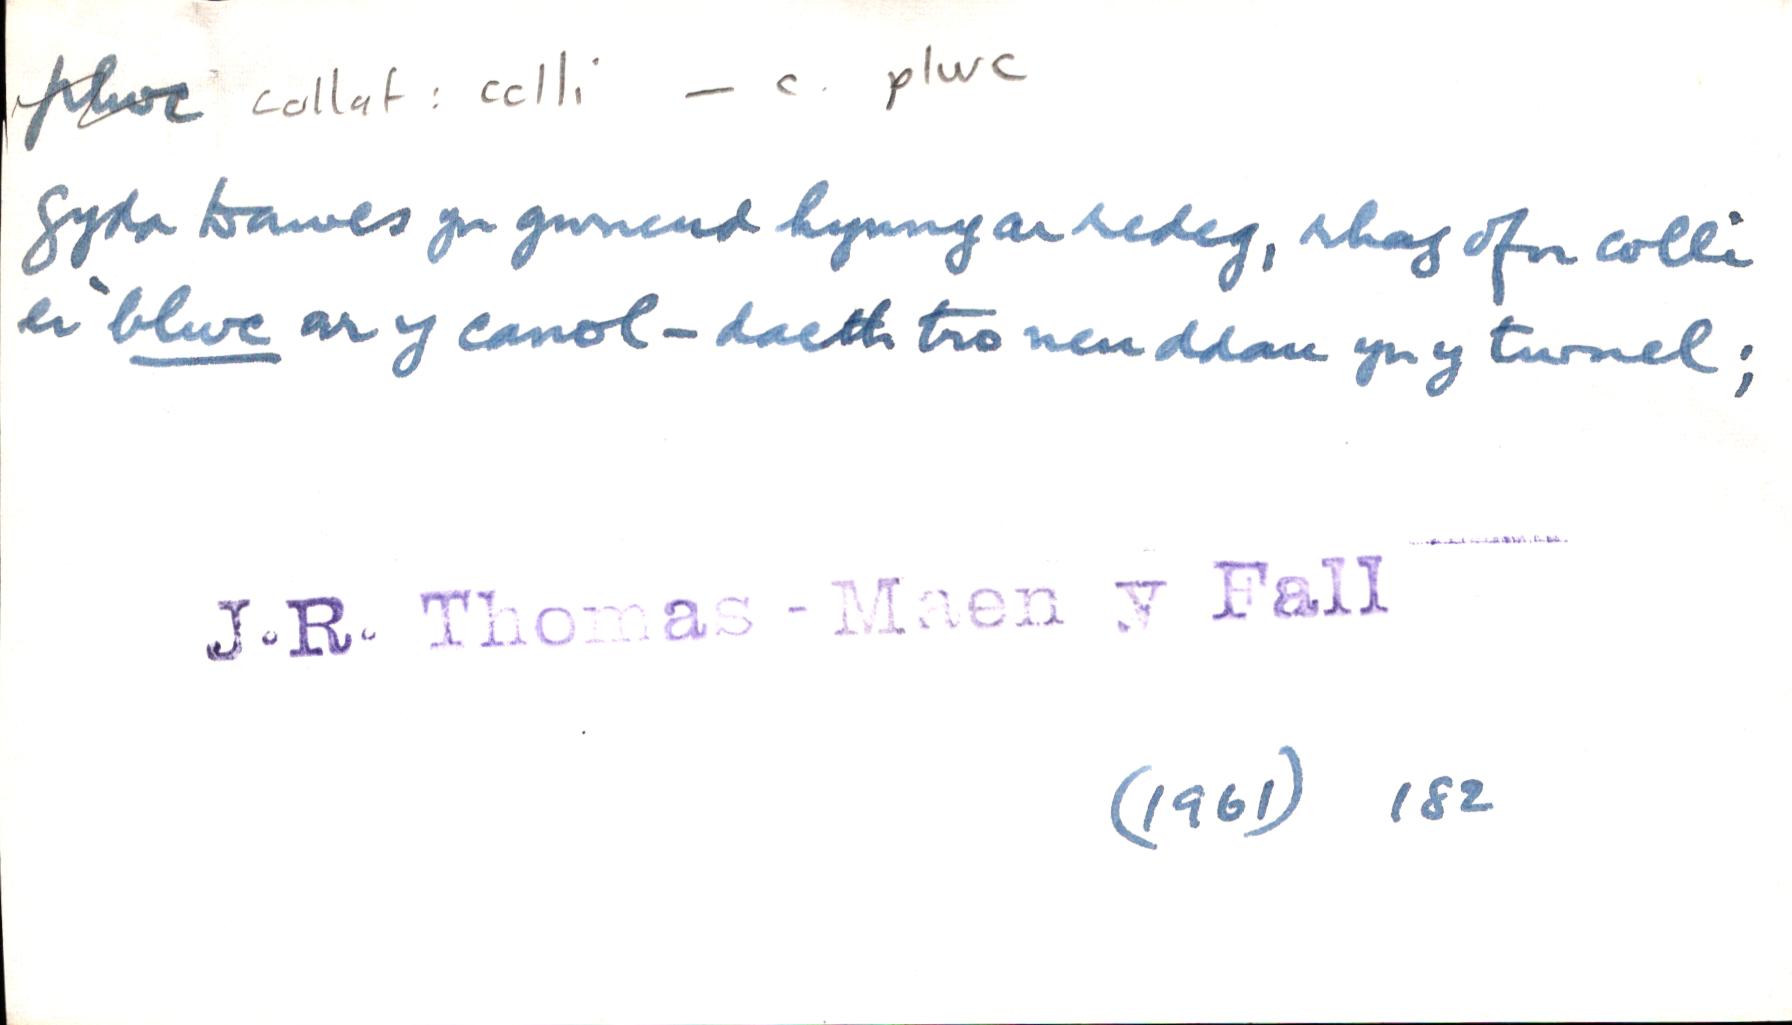 plwc collat: colli — c. plwc
gyda Dawes yn gwneud hynny ar redeg, rhag ofn colli
ei blwc ar y canol - daeth tro neu ddau yn y twnel;
J.R. Thomas - Maen y Fall
(1961) 182